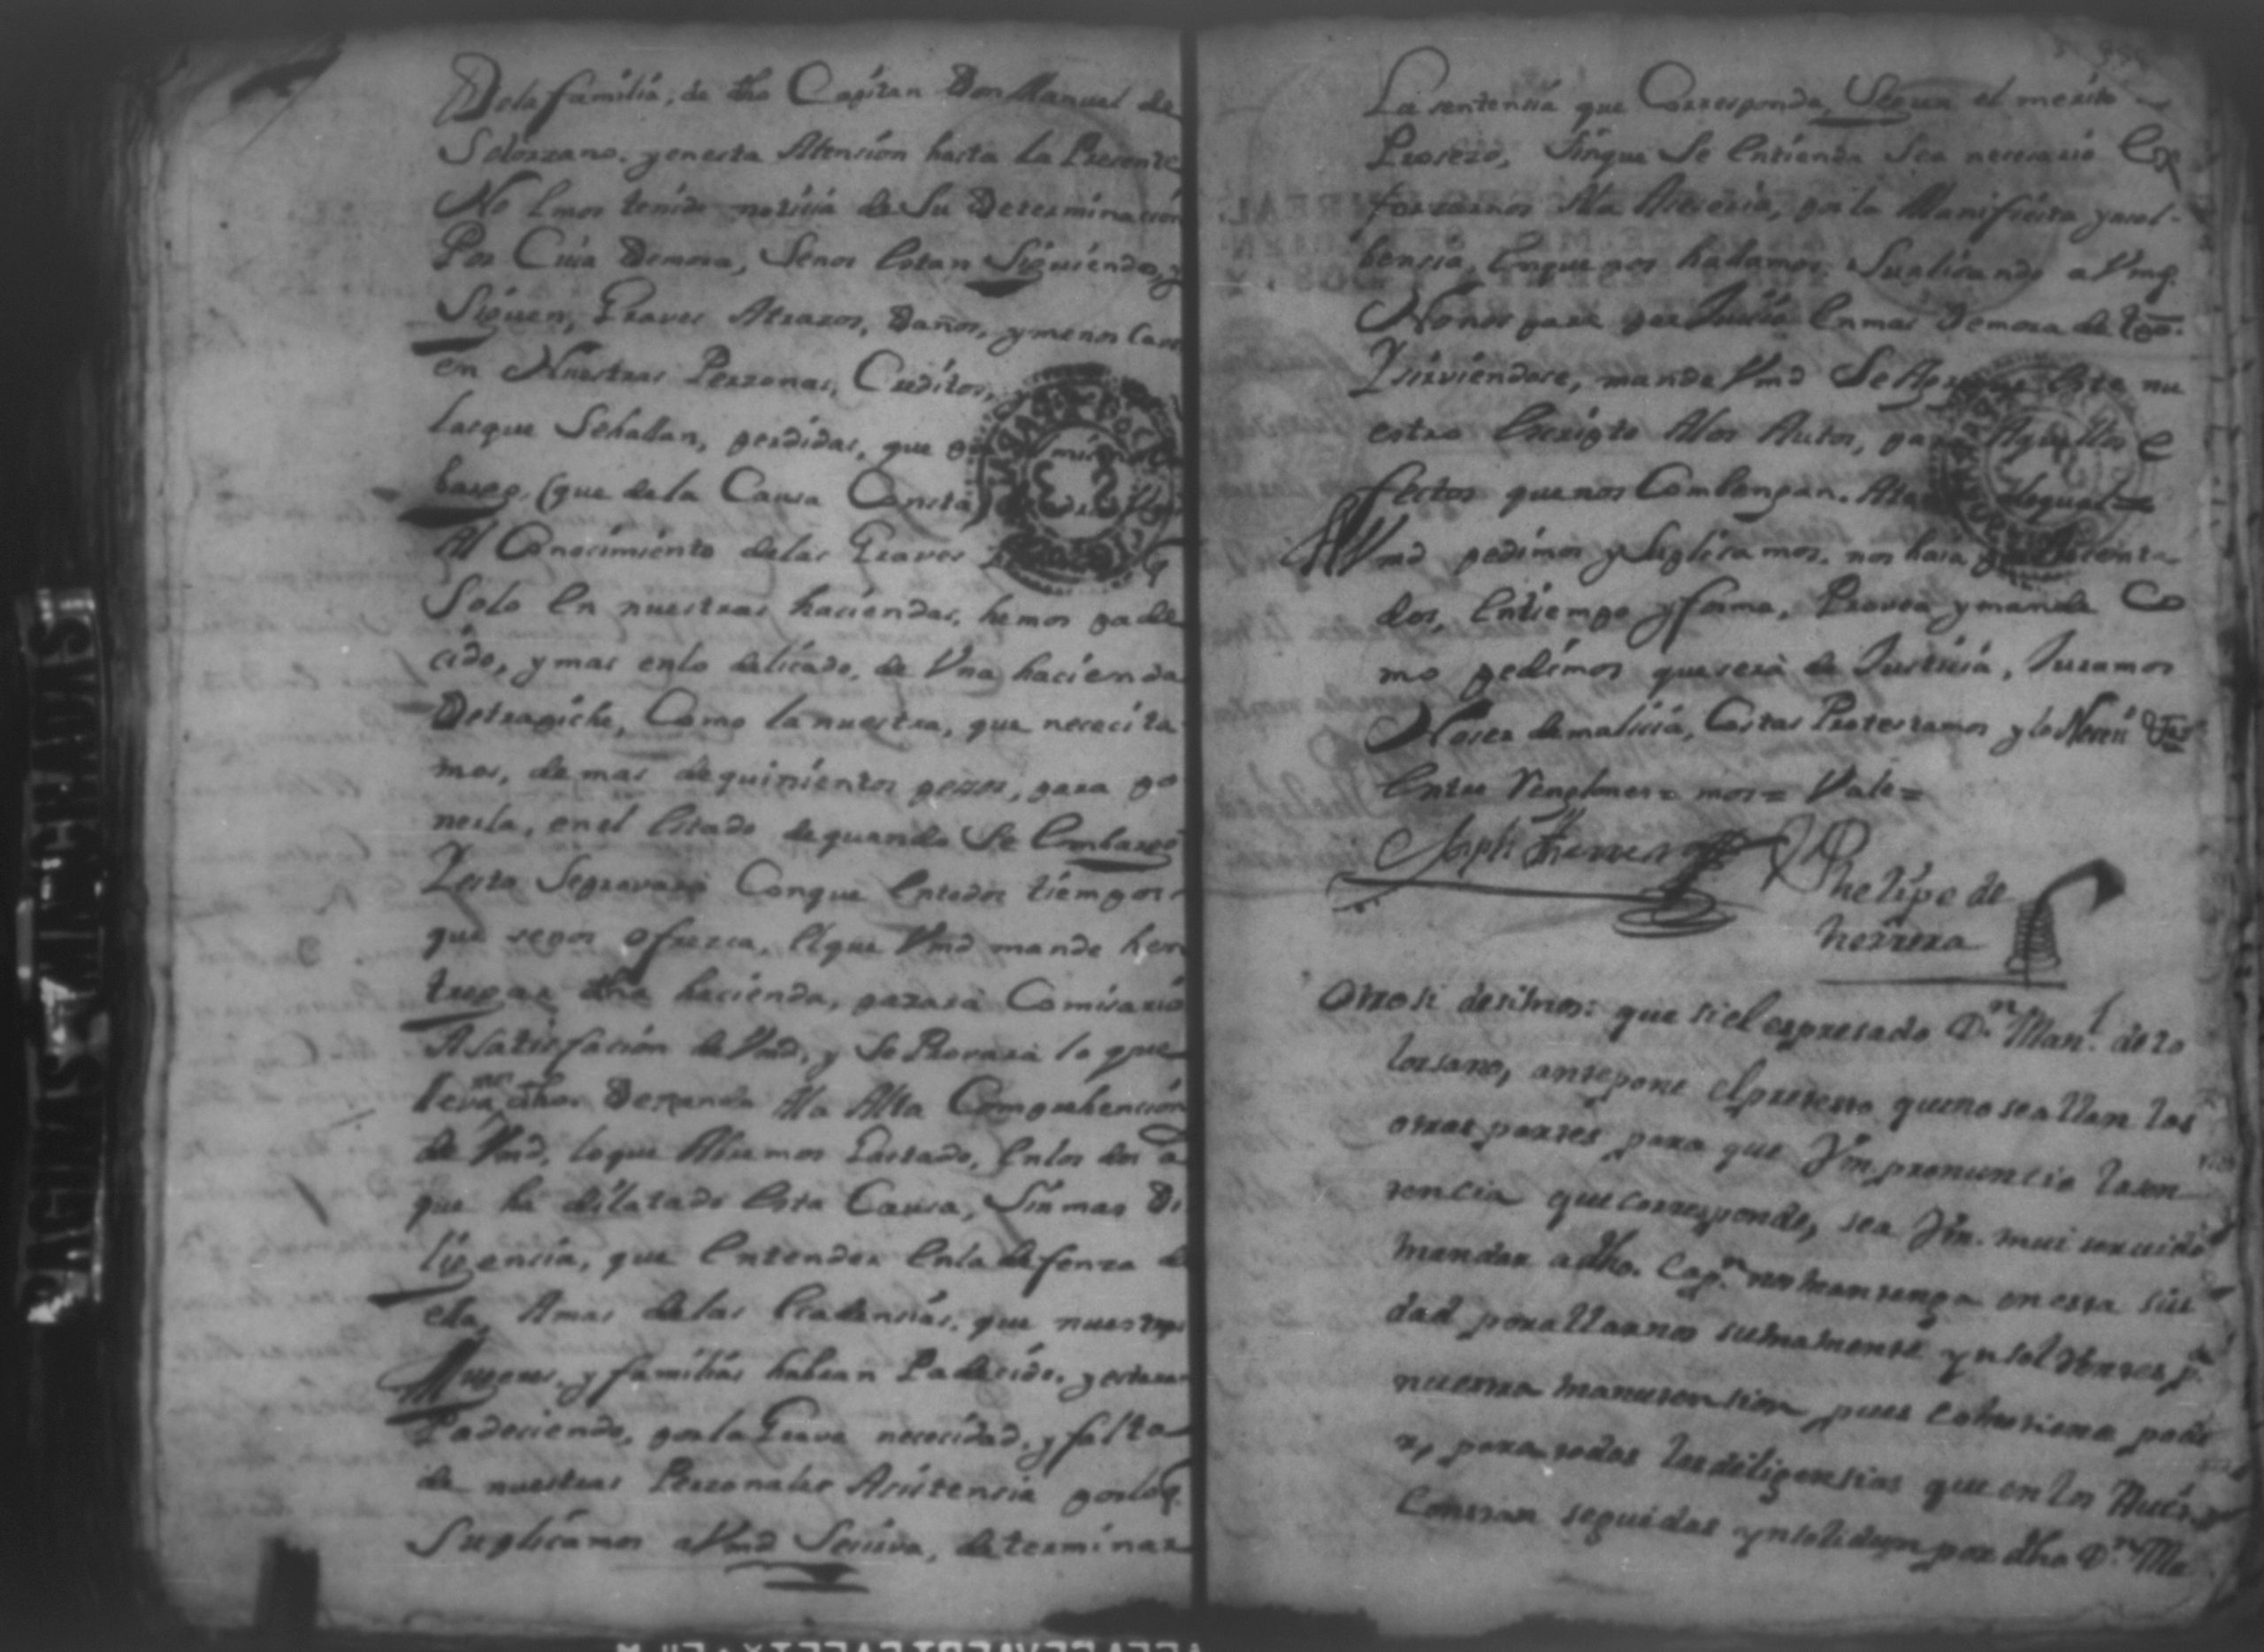 De la familia, de dho Capitan Don Manuel de
Solorzano. y enesta Atension hasta la Presente
No hmos tenido noticia de Su Determinacion
Por Cuia Demora, Senos Estan Siguiendo, y
Siguen, Graves Atrazos, Daños, y menos Cavo
en Nuestras Perzonas, Creditos,
lasque Sehallan, perdidas, que
bargo, (que dela Causa Consta)
Al Conocimiento delas Graves
Solo En nuestras haciendas, hemos pade
cido, y mas enlo delicado, de Vna hacienda
Detrapiche, Como la nuestra, que nececita
mos, de mas dequinientos pesos, para po
nerla, enel Estado dequando Se Embargó
Yesto Seprovará Conque Entodos tiempos
que senos ofrezca. Elque Vmd mande hen
tregar dha hacienda, pazará Comisario
A satisfacion de Vmd, y Se Provará lo que
llevamos dho. Dexando Ala Alta Comprehencion
de Vmd, loque Abremos Gastado, Enlos dos a
que há dilatado Esta Causa, Sin mas Di
ligencia, que Entender Enla defenza de
ella, Amas delas que nuestras
Mugeres, y familias habran Padecido, y estaran
Padeciendo, porla Grave nececidad, y falta
de nuestras Perzonales Asistencia porloq
Suplicamos aVmd Sesirva, determinar
La sentensia que Corresponda, Segun el merito
Prosezo, Sinque Se Entienda Sea necesario Ex
forzarnos Ala porla Manifiesta
Enque nos hallamos. Suplicando a Vmd.
Nonos pare perJuicio Enmas Demora de tpo.
Ysirviendose, mande Vmd Se Agregue Este nu
estro Escripto Alos Autos, para Aquellos E
fectos quenos Combengan. Atento Aloqual
AVmd pedimos y Suplicamos, nos haia por Presenta
dos, Entiempo y forma, Provea y mande Co
mo pedimos que será de Justicia, Juramos
Noser demalicia, Costas Protestamos y lo Neseso Vt
Entre Renglones = mos = Vale =
Joseph Herrera
Phelipe de
herrera
Otrosi desimos: que si el expresado Dn Manl. de so
lorsano, antepone el pretexto queno seallan las
otras partes para que Vm. pronuncie lasen
tencia que corresponde, sea Vm. mui servido
mandar adho. Capn. nos mantenga en esta siu
dad por allarnos sumamente ynsolventes pa.
nuestra manutension pues Como tiene pode
r, para todas las diligensias que en los Autos
Constan seguidas ynsolidum por dho Dn Ma
PAGINAS MALTRATADAS